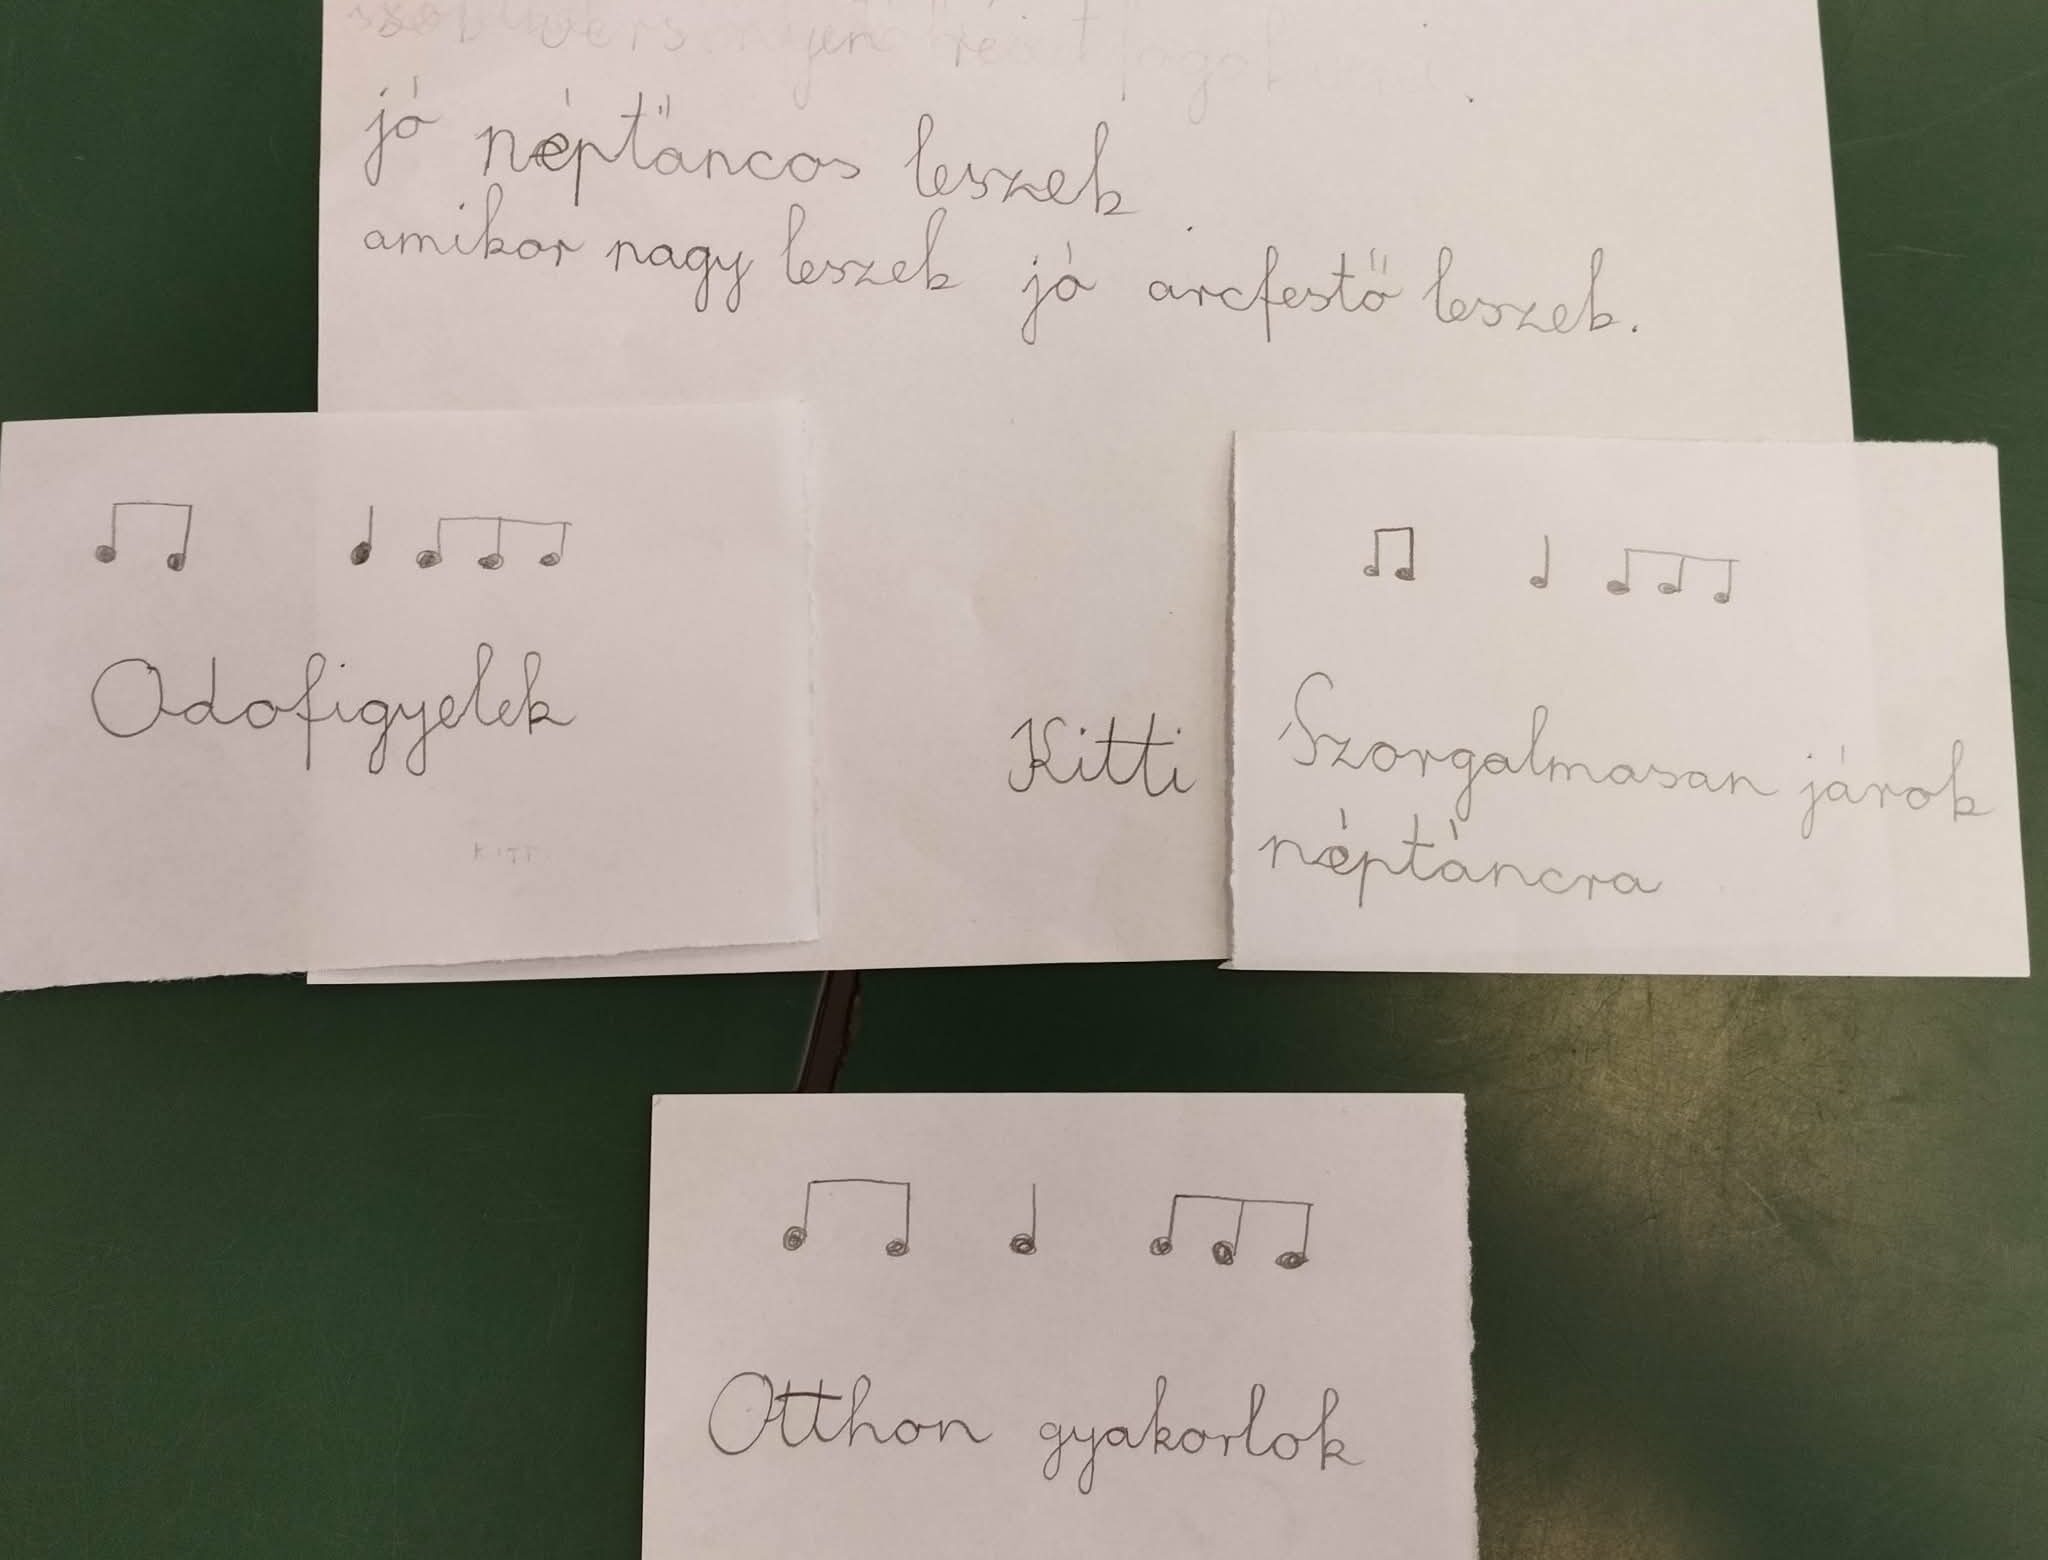 jó néptáncos leszek
amikor nagy leszek jó arcfestő leszek.
Odafigyelek
Kitti
Szorgalmasan járok
néptáncra
Otthon gyakorlok